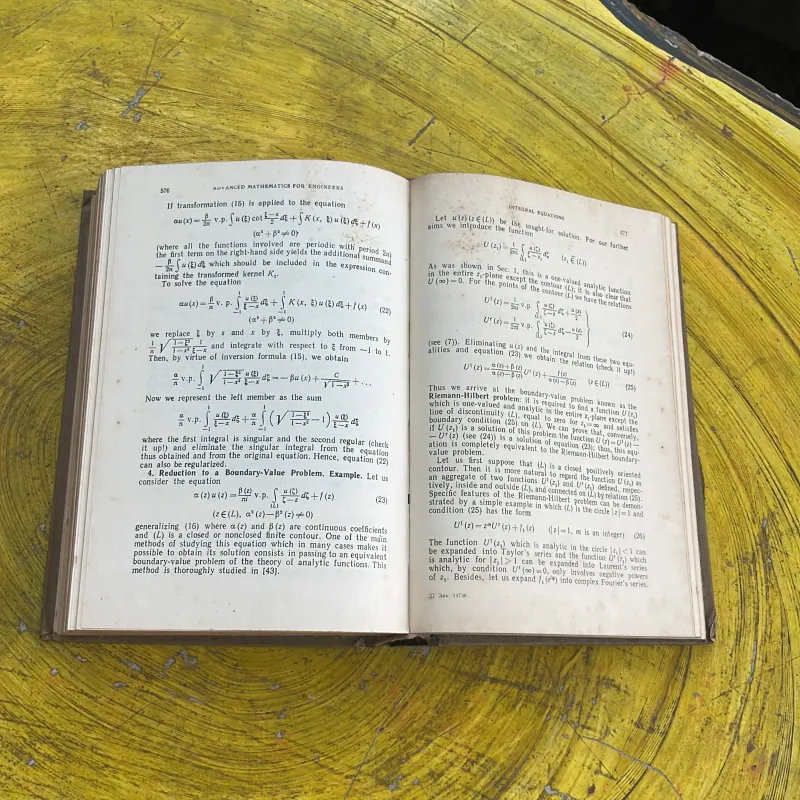 576
ADVANCED MATHEMATICS FOR ENGINEERS
If transformation (15) is applied to the equation
αu(x) = β/2π v.p. ∫ u(ξ) cot (ξ−s)/2 dξ + ∫ K(x, ξ) u(ξ) dξ + f(x)
(α² + β² ≠ 0)
(where all the functions involved are periodic with period 2π)
the first term on the right-hand side yields the additional summand
− β/2π ∫ u(ξ) dξ which should be included in the expression con-
taining the transformed kernel K₁.
To solve the equation
αu(x) = β/π v. p. ∫₋₁¹ u(ξ)/(ξ−s) dξ + ∫₋₁¹ K(x, ξ) u(ξ) dξ + f(x) (22)
(α² + β² ≠ 0)
we replace ξ by s and x by ξ, multiply both members by
1/π √((1−ξ²)/(1−x²)) 1/(ξ−s) and integrate with respect to ξ from −1 to 1.
Then, by virtue of inversion formula (15), we obtain
α/π v.p. ∫₋₁¹ √((1−ξ²)/(1−x²)) u(ξ)/(ξ−s) dξ = −βu(x) + C/√(1−x²) + ...
Now we represent the left member as the sum
α/π v.p. ∫₋₁¹ u(ξ)/(ξ−s) dξ + α/π ∫₋₁¹ (√((1−ξ²)/(1−x²)) − 1) u(ξ)/(ξ−s) dξ
where the first integral is singular and the second regular (check
it up!) and eliminate the singular integral from the equation
thus obtained and from the original equation. Hence, equation (22)
can also be regularized.
4. Reduction to a Boundary-Value Problem. Example. Let us
consider the equation
α(z) u(z) = β(z)/πi v.p. ∫(L) u(ζ)/(ζ−s) dζ + f(z) (23)
(z∈(L), α²(z)−β²(z) ≠ 0)
generalizing (16) where α(z) and β(z) are continuous coefficients
and (L) is a closed or nonclosed finite contour. One of the main
methods of studying this equation which in many cases makes it
possible to obtain its solution consists in passing to an equivalent
boundary-value problem of the theory of analytic functions. This
method is thoroughly studied in [43].
INTEGRAL EQUATIONS
577
Let u(z) (z∈(L)) be the sought-for solution. For our further
aims we introduce the function
U(z₁) = 1/2πi ∫(L) u(ζ)/(ζ−z₁) dζ (z₁ ∉ (L))
As was shown in Sec. 1, this is a one-valued analytic function
in the entire z₁-plane except the contour (L); it is also clear that
U(∞) = 0. For the points of the contour (L) we have the relations
1/2πi v.p. ∫(L) u(ζ)/(ζ−z) dζ + u(z)/2
1/2πi v.p. ∫(L) u(ζ)/(ζ−z) dζ − u(z)/2 (24)
(see (7)). Eliminating u(z) and the integral from these two equ-
alities and equation (23) we obtain the relation (check it up!)
(α(z)+β(z))/(α(z)−β(z)) f(z)/(α(z)−β(z)) (z∈(L)) (25)
Thus we arrive at the boundary-value problem known as the
Riemann-Hilbert problem: it is required to find a function U(z₁)
which is one-valued and analytic in the entire z₁-plane except the
line of discontinuity (L), equal to zero for z₁=∞ and satisfies
boundary condition (25) on (L). We can prove that, conversely,
if U(z₁) is a solution of this problem the function
(see (24)) is a solution of equation (23); thus, this equ-
ation is completely equivalent to the Riemann-Hilbert boundary-
value problem.
Let us first suppose that (L) is a closed positively oriented
contour. Then it is more natural to regard the function U(z₁) as
an aggregate of two functions defined, respec-
tively, inside and outside (L), and connected on (L) by relation (25).
Specific features of the Riemann-Hilbert problem can be demon-
strated by a simple example in which (L) is the circle |z|=1 and
condition (25) has the form
(|z|=1, m is an integer) (26)
The function which is analytic in the circle |z₁|<1 can
be expanded into Taylor's series and the function which
is analytic for |z₁|>1 can be expanded into Laurent's series
which, by condition only involves negative powers
of z₁. Besides, let us expand into complex Fourier's series.